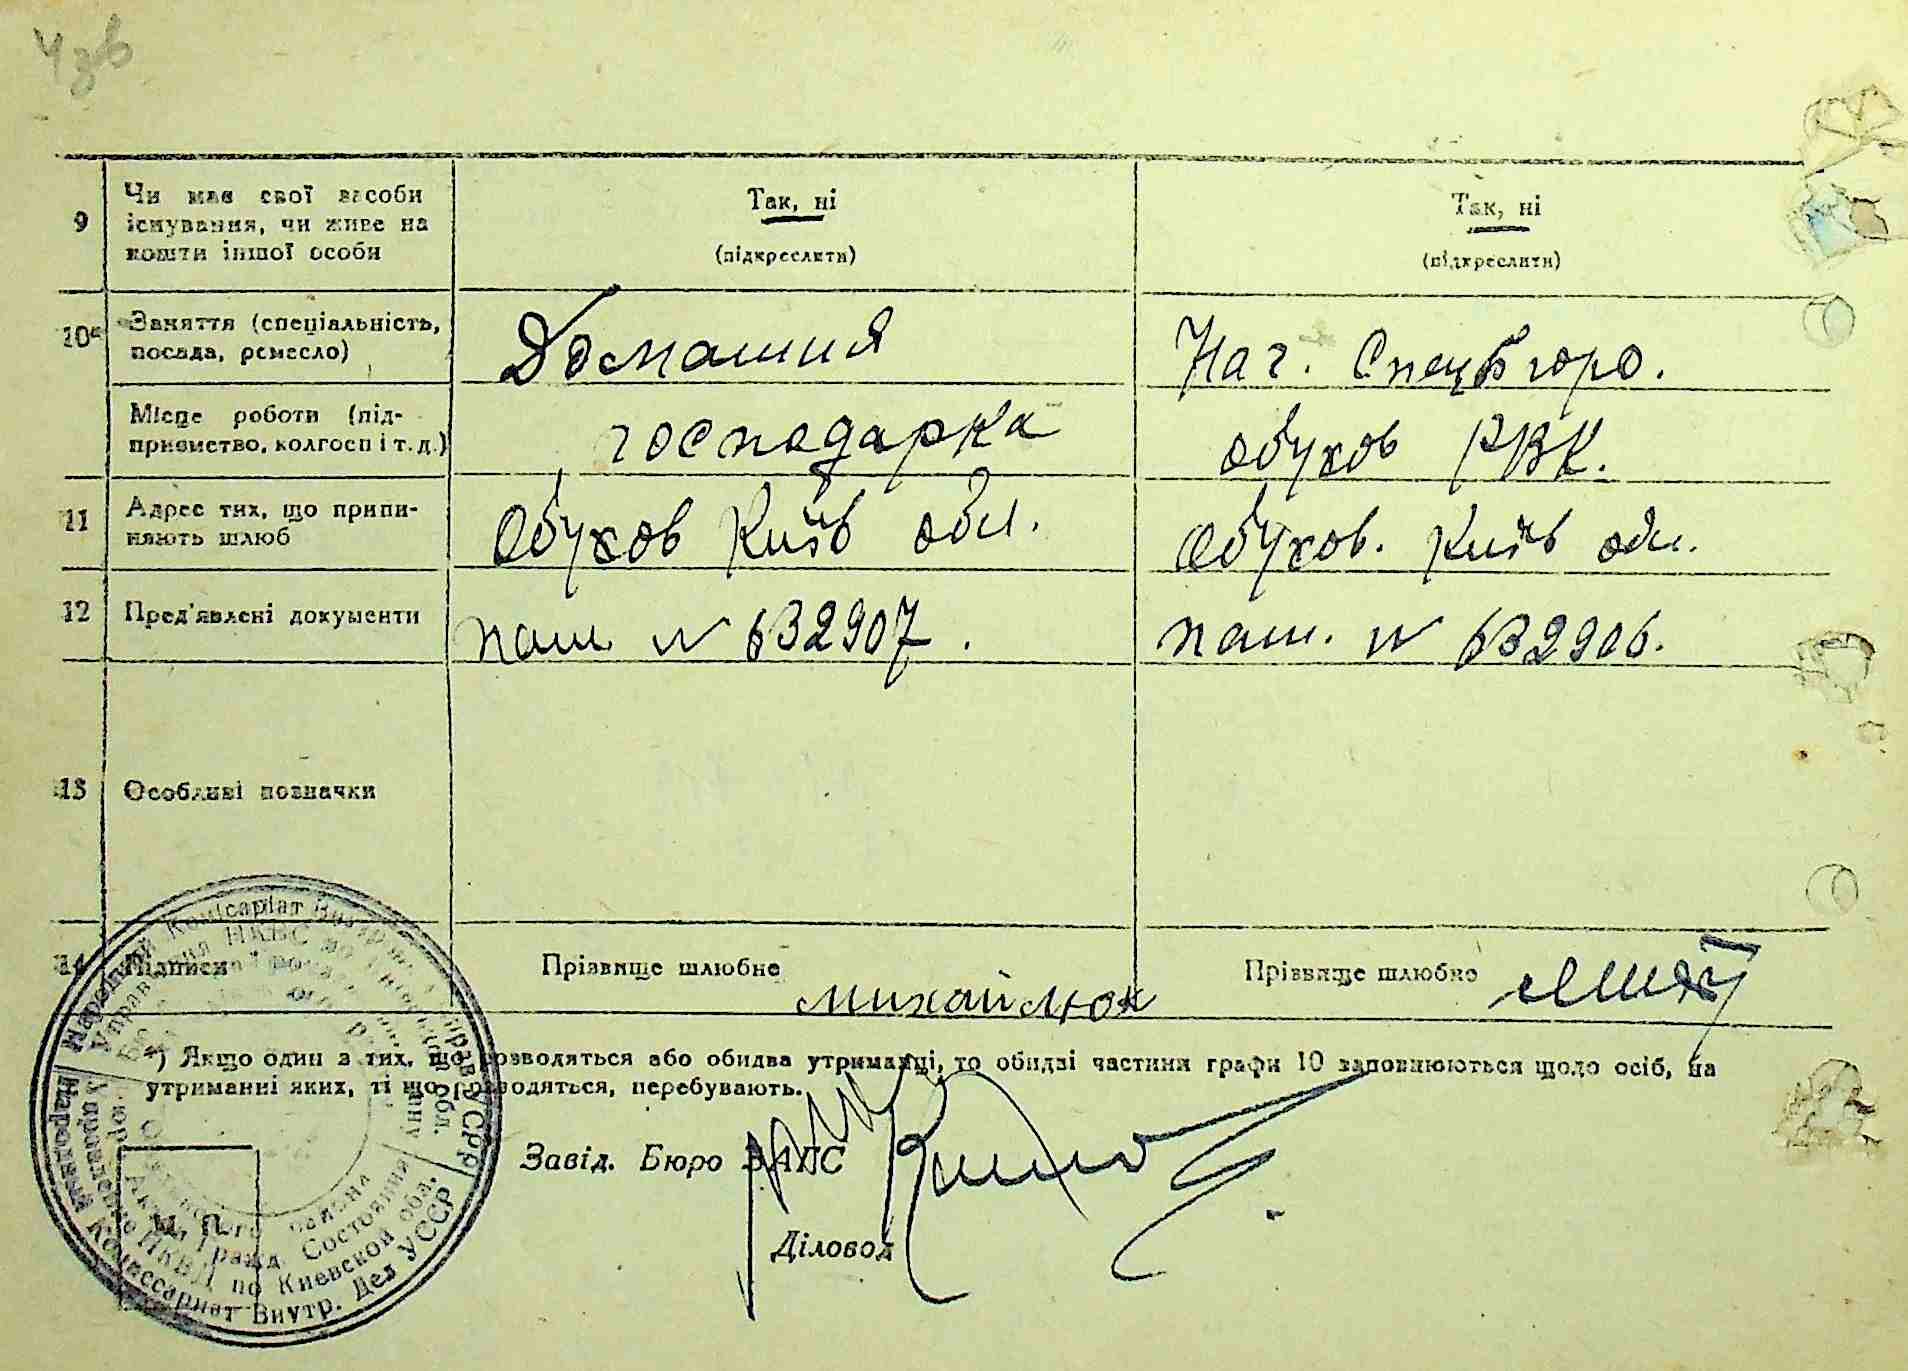 9 Чи має свої засоби існування, чи живе на кошти іншої особи
Так, ні
(підкреслити)
Так, ні
(підкреслити)
10* Заняття (спеціальність, посада, ремесло)
Домашня
Нач. Спецбюро.
Місце роботи (підприємство, колгосп і т. д.)
господарка
Обухов РВК.
11 Адрес тих, що припиняють шлюб
Обухов Київ обл.
Обухов. Київ обл.
12 Пред'явлені документи
паш № 632907.
паш. № 632906.
13 Особливі позначки
14 Підписи
Прізвище шлюбне Михайлюк
Прізвище шлюбне
*) Якщо один з тих, що розводяться або обидва утриманці, то обидві частини графи 10 заповнюються щодо осіб, на
утриманні яких, ті що розводяться, перебувають.
Завід. Бюро ЗАГС
Діловод
М. П.
Народний Комісаріат Внутр. Справ УСРР
Управління НКВС по Київській обл.
Народный Комиссариат Внутр. Дел УССР
Управление НКВД по Киевской обл.
Актов Гражд. Состояния
района